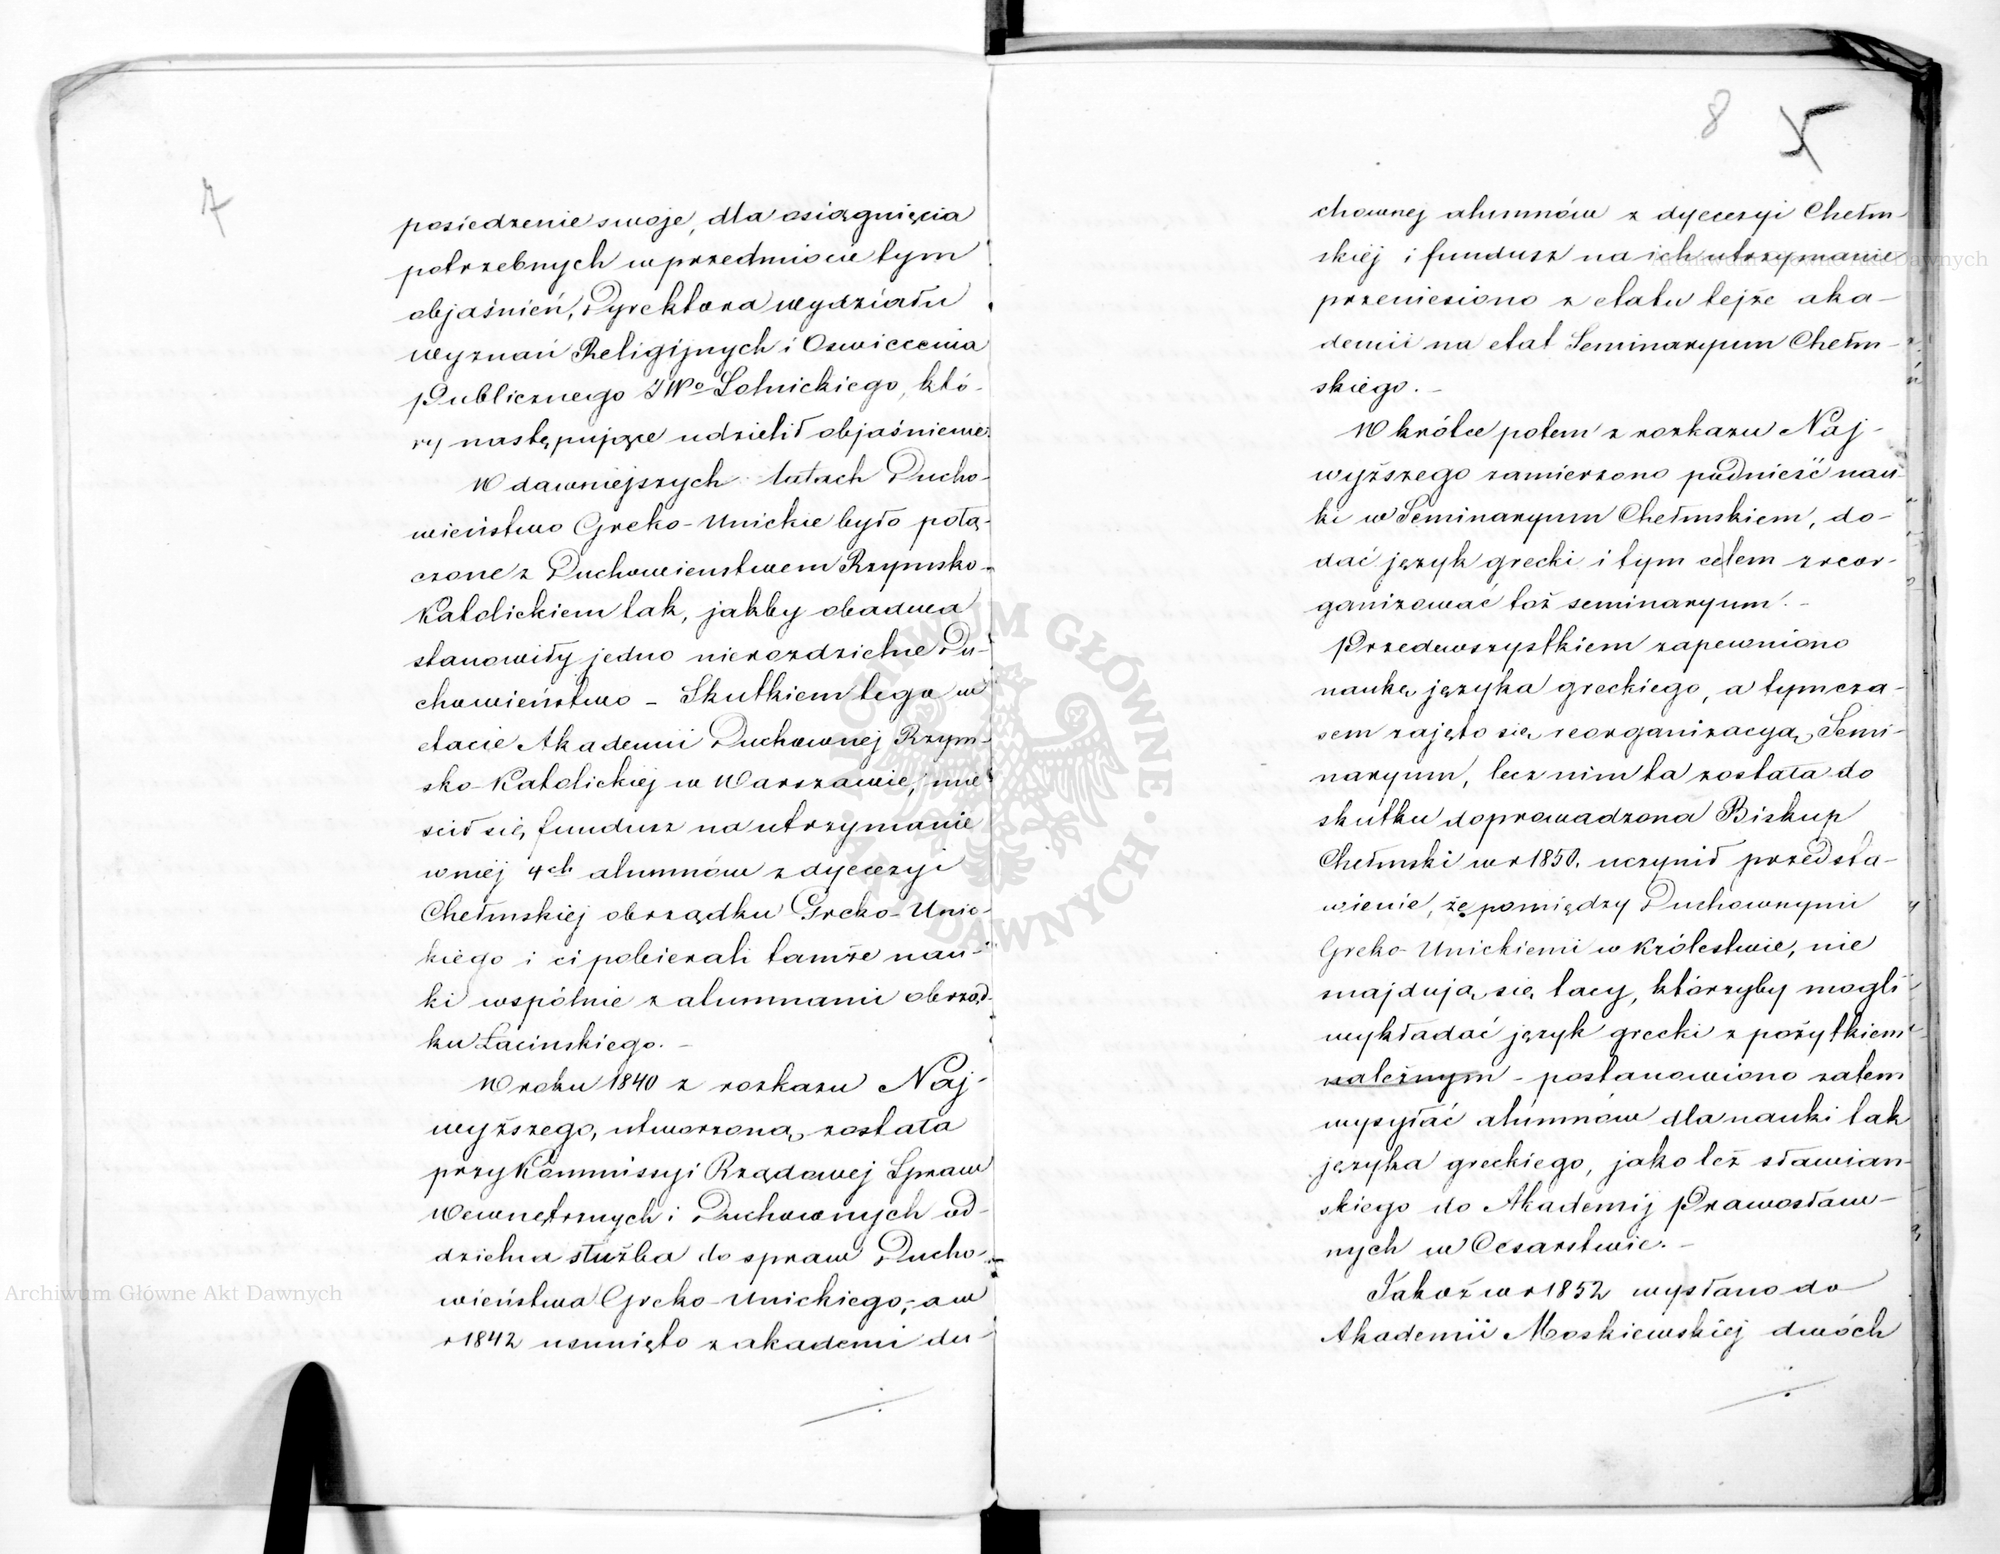 7
posiedzenie swoje, dla osiągnięcia
potrzebnych w przedmiocie tym
objaśnień, Dyrektora wydziału
wyznań Religijnych i Oswiecenia
Publicznego JWo Lotnickiego, któ-
ry następujące udzielił objaśnienie:
W dawniejszych latach Ducho-
wieństwo Greko-Unickie było połą-
czone z Duchowienstwem Rzymsko-
Katolickiem tak, jakby obadwa
stanowiły jedno nierozdzielne Du-
chowieństwo - Skutkiem tego w
etacie Akademii Duchownej Rzym-
sko-Katolickiej w Warszawie, mie
scił się, fundusz na utrzymanie
w niej 4ch alumnów z dyecezyi
Chełmskiej obrządku Greko-Unic-
kiego i ci pobierali tamże nau-
ki wspólnie z alumnami obrząd-
ku Łacinskiego. -
W roku 1840 z rozkazu Naj-
wyższego, utworzoną, została
przy Kommissyi Rządowej Spraw
Wewnętrznych i Duchownych od-
dzielna służba do spraw Ducho-
wieństwa Greko-Unickiego, - a w
r 1842 usunięto z akademi du-
8
5
chownej alumnów z dyecezyi Chełm-
skiej i fundusz na ich utrzymanie
przeniesiono z etatu tejże aka-
demii na etat Seminaryum Chełm-
skiego. -
W krótce potem z rozkazu Naj-
wyższego zamierzono podnieść nau-
ki w Seminaryum Chełmskiem, do-
dać język grecki i tym celem zreor-
ganizować toż seminaryum. -
Przedewszystkiem zapewniono
naukę języka greckiego, a tymcza-
sem zajęto się reorganizacyą Semi-
naryum, lecz nim ta została do
skutku doprowadzona Biskup
Chełmski w r 1850, uczynił przedsta-
wienie, że pomiędzy Duchownymi
Greko-Unickiemi w Królestwie, nie
znajdują się tacy, którzyby mogli
wykładać język grecki z pożytkiem
należnym - postanowiono zatem
wysyłać alumnów dla nauki tak
języka greckiego, jako też sławian-
skiego do Akademij Prawosław-
nych w Cesarstwie. -
Jakoż w r 1852 wysłano do
Akademii Moskiewskiej dwóch
Archiwum Główne Akt Dawnych
Archiwum Główne Akt Dawnych
ARCHIWUM GŁÓWNE AKT DAWNYCH